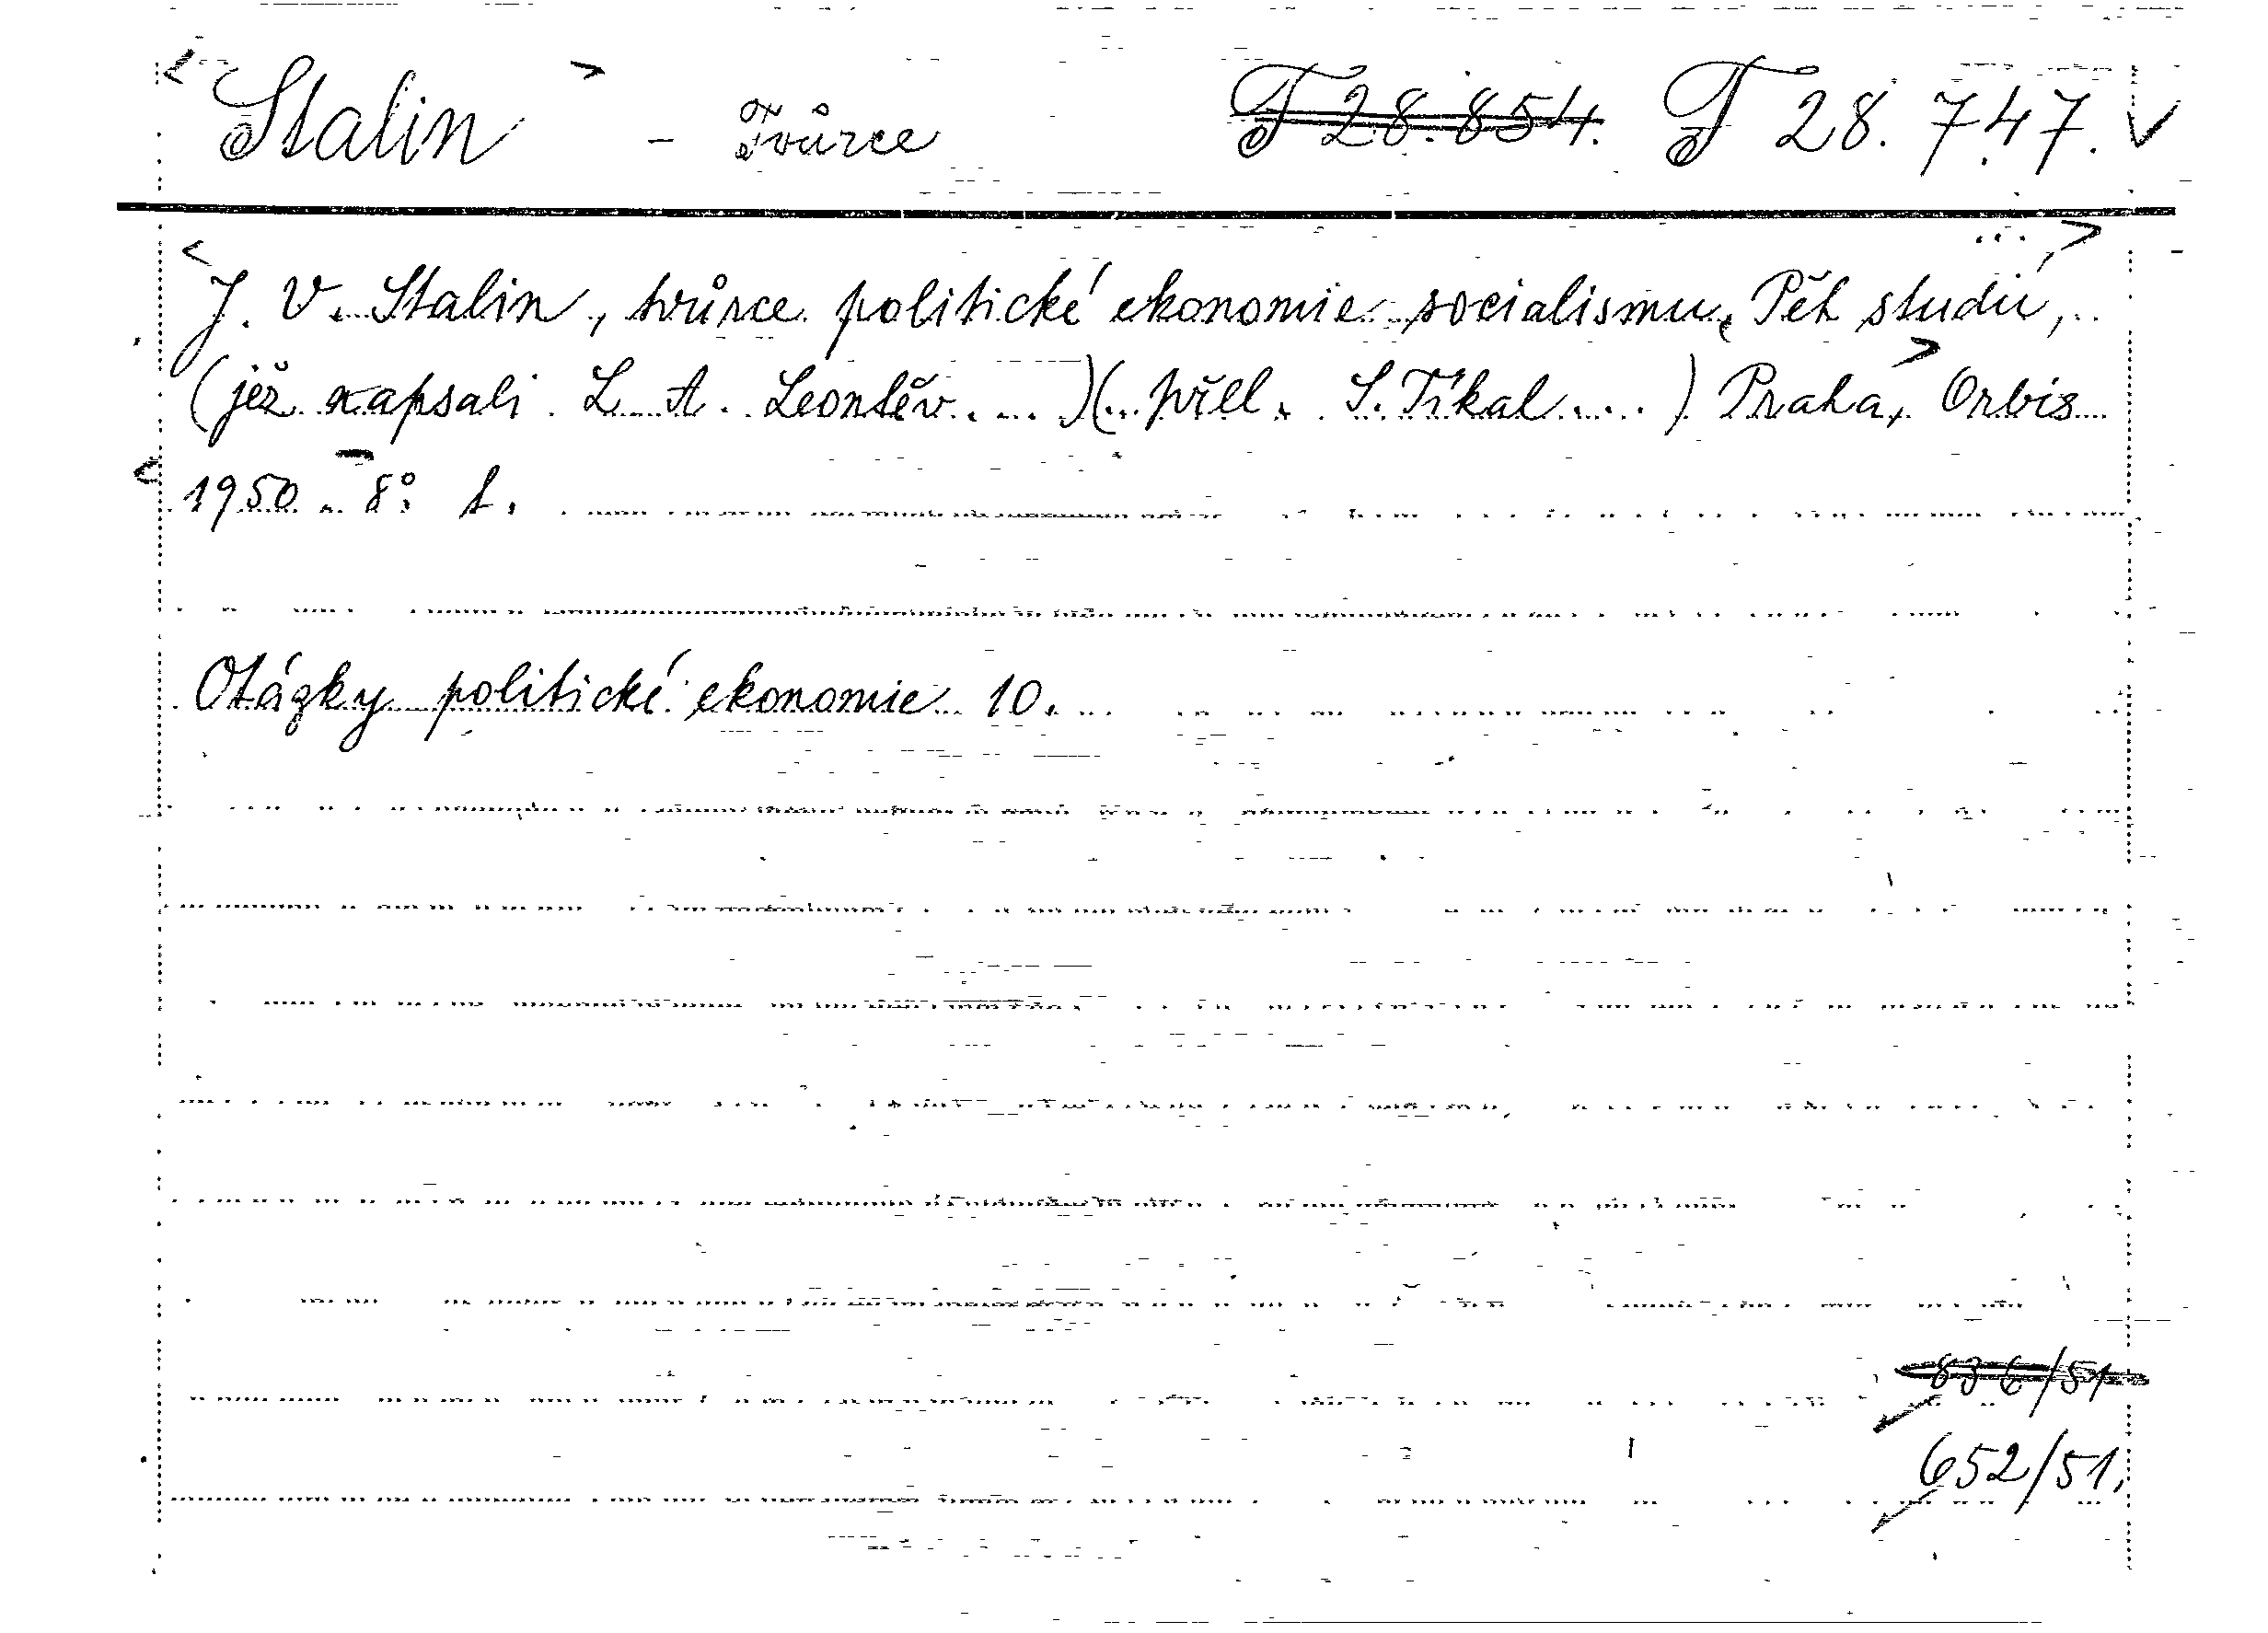 <Stalin> - Tvůrce T 28.854. T 28.747. V
<J. V. Stalin, tvůrce politické ekonomie socialismu. Pět studií, ...>
(jež napsali L. A. Leonťěv. ...)(.. přel. S. Tikal ....) Praha, > Orbis
<1950 - 8° 1.
Otázky politické ekonomie 10.
836/51
652/51,